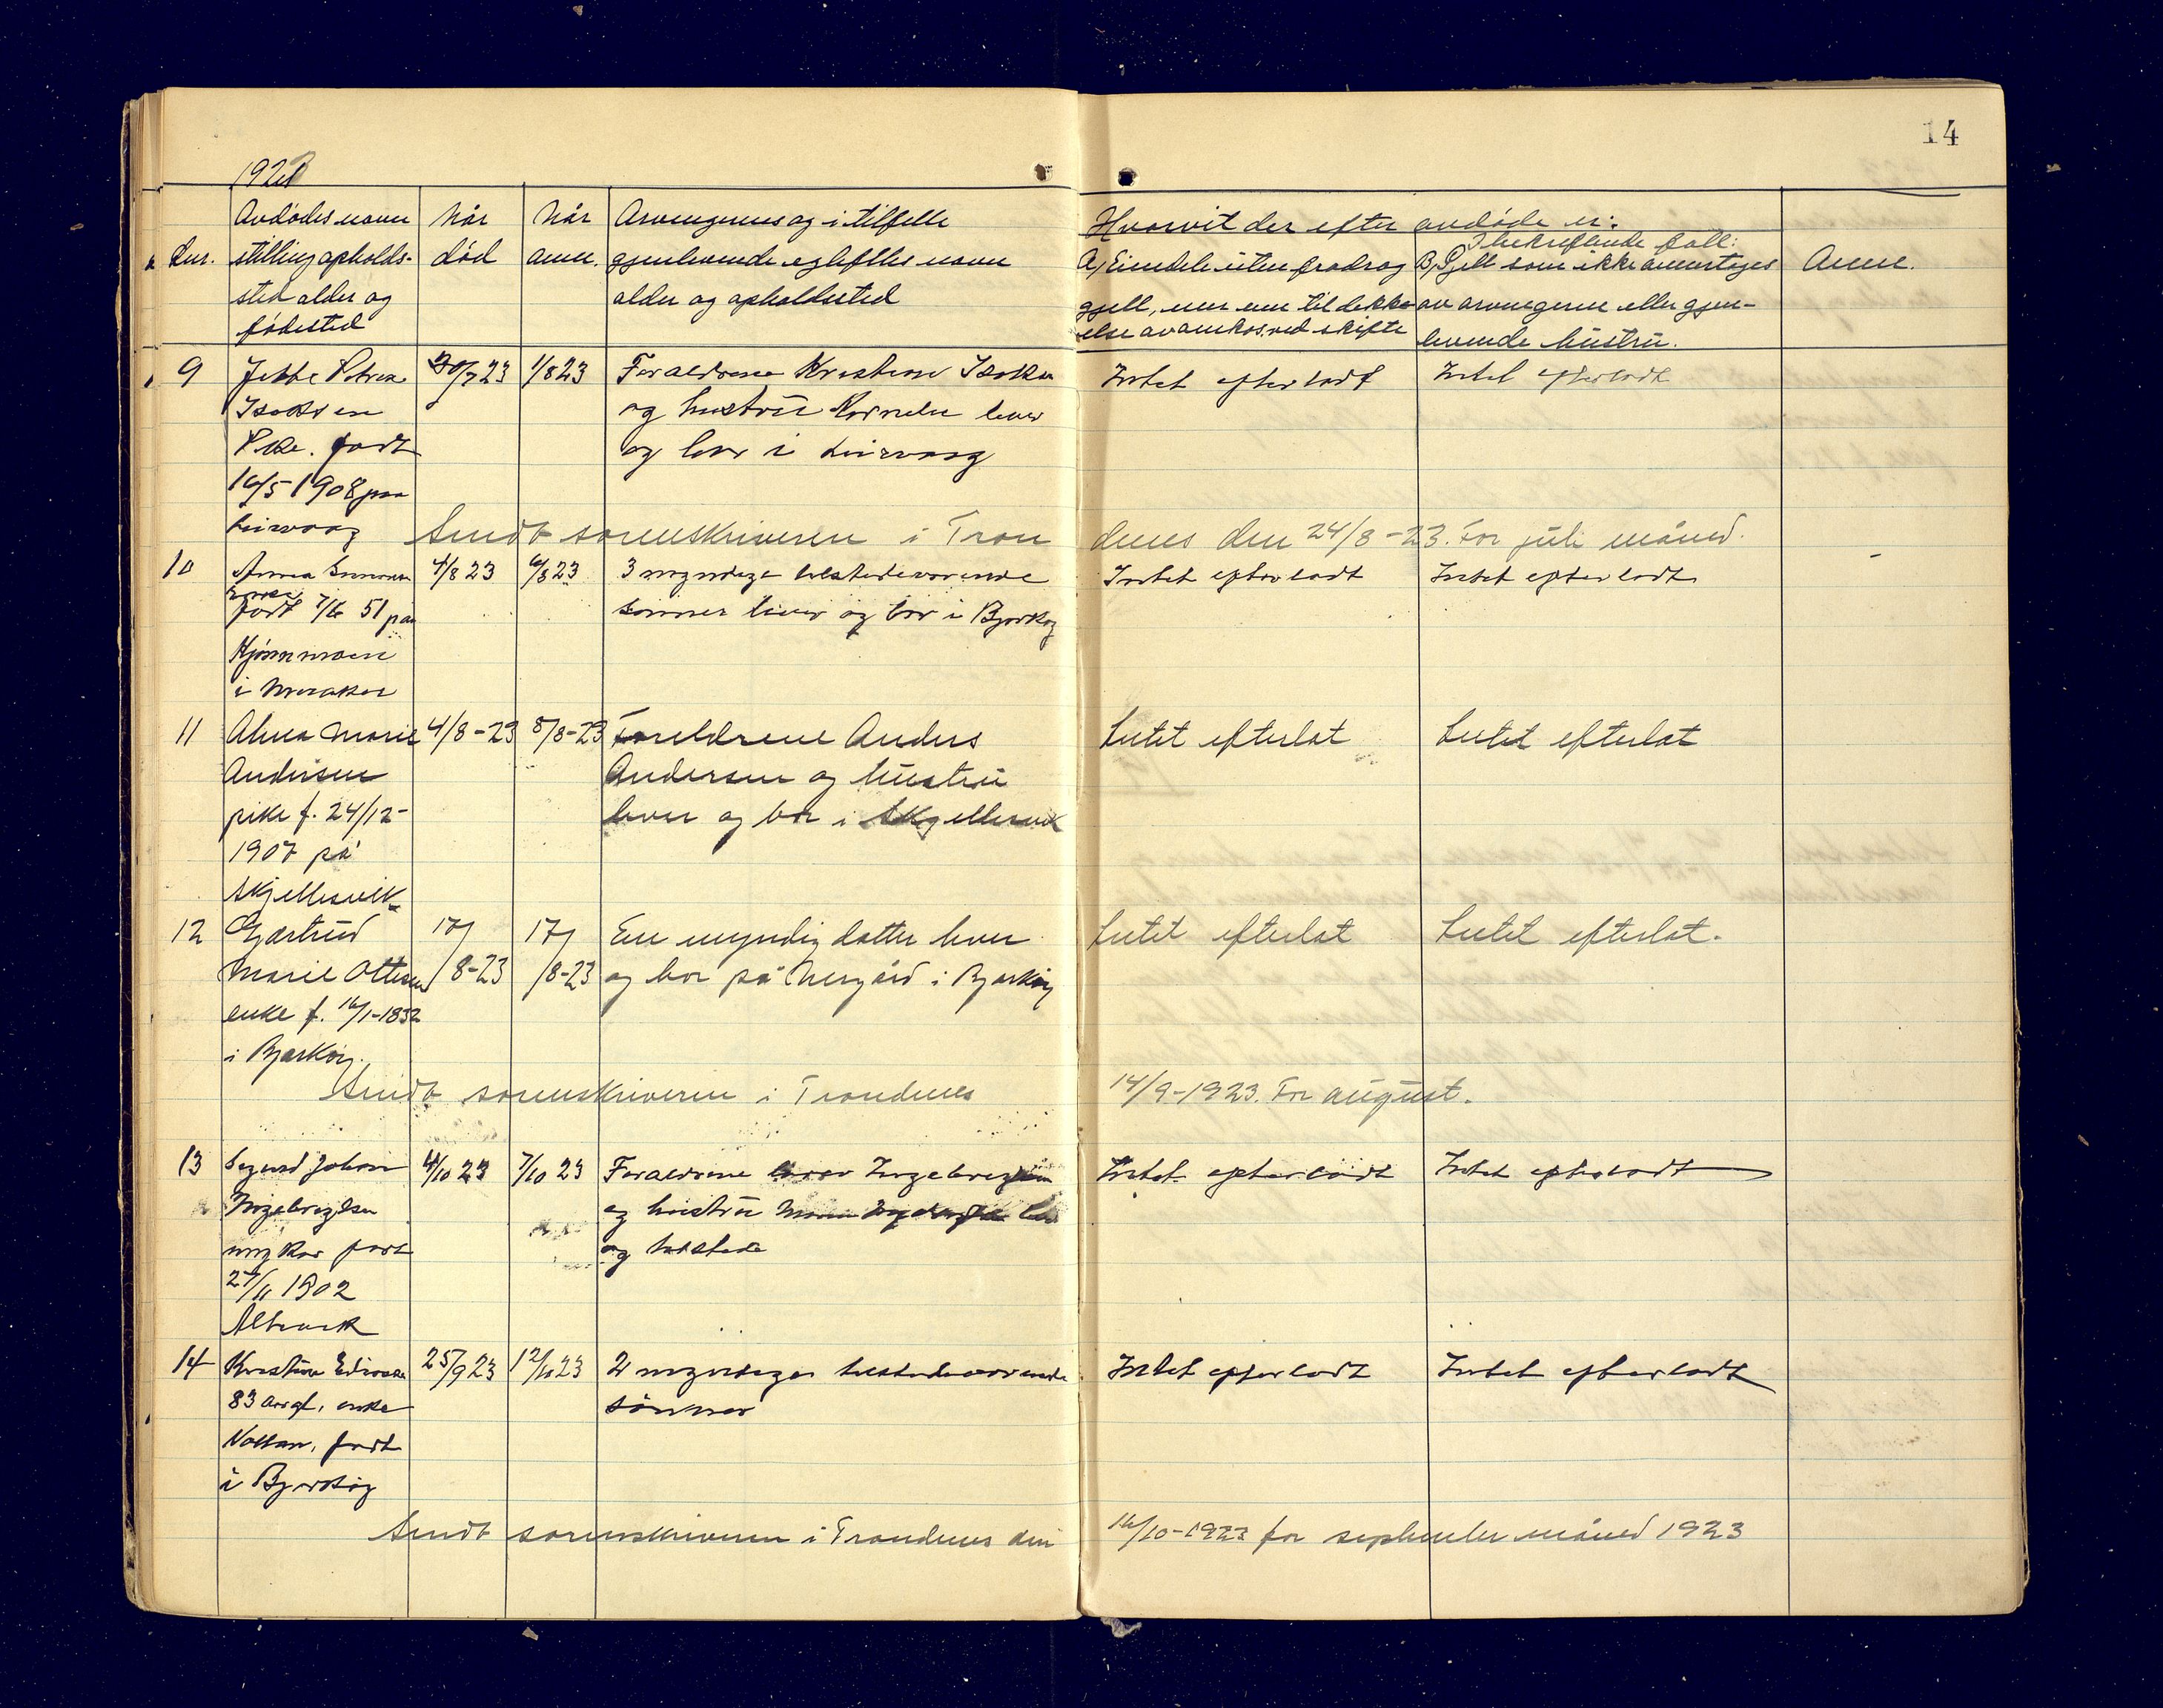 14
1923
Lnr.
Avdødes navn
stilling opholds-
sted alder og
fødested
Når
død
Når
anm.
Arvingernes og i tilfelle
gjenlevende egtefelles navn
alder og opholdssted
Hvorvit der efter avdøde er:
A) Eiendele uten fradrag
gjell, mer enn til dekk-
else av omkos. ved skifte
I bekreftende fall:
B) Gjell som ikke overtages
av arvingerne eller gjen-
levende hustru.
Anm.
9
Petrea
Isaksen
Pike. født
16/5 1908 paa
Leirvaag
30/7 23
1/8 23
Foraldrene Kristian Isaksen
og hustru lever
og bor i Leirvaag
Intet efterladt
Intet efterladt
Sendt sorenskriveren i Tron
denes den 24/8-23. For juli måned.
10
Anna
født 7/6 51 paa
i Meraker
4/8 23
6/8 23
3 myndige tilstedeværende
sønner lever og bor i Bjarkøy
Intet efterladt
Intet efterladt
11
Alma Marie
Andersen
pike f. 24/12-
1907 på
Skjellesvik
4/8-23
8/8-23
Foreldrene Anders
Andersen og hustru
lever og bor i Skjellesvik
Intet efterlat
Intet efterlat
12
Gjertrud
Marie Ottesen
enke f. 16/1-1832
i Bjarkøy.
17/8-23
17/8-23
En myndig datter lever
og bor på Nergård i Bjarkøy
Intet efterlat
Intet efterlat.
Sendt sorenskriveren i Trondenes
14/9-1923. For august.
13
Sigurd Johan
Ingebrigtsen
ungkar født
27/11 1902
Altevik
4/10 23
7/10 23
Foraldrene Ingebrigtsen
og hustru
og tilstede
Intet efterladt
Intet efterladt
14
Kristine
83 aar gl. enke
født
i Bjarkøy
25/9 23
12/10 23
2 myndige tilstedeværende
sønner
Intet efterladt
Intet efterladt
Sendt sorenskriveren i Trondenes den
16/10-1923 for september måned 1923